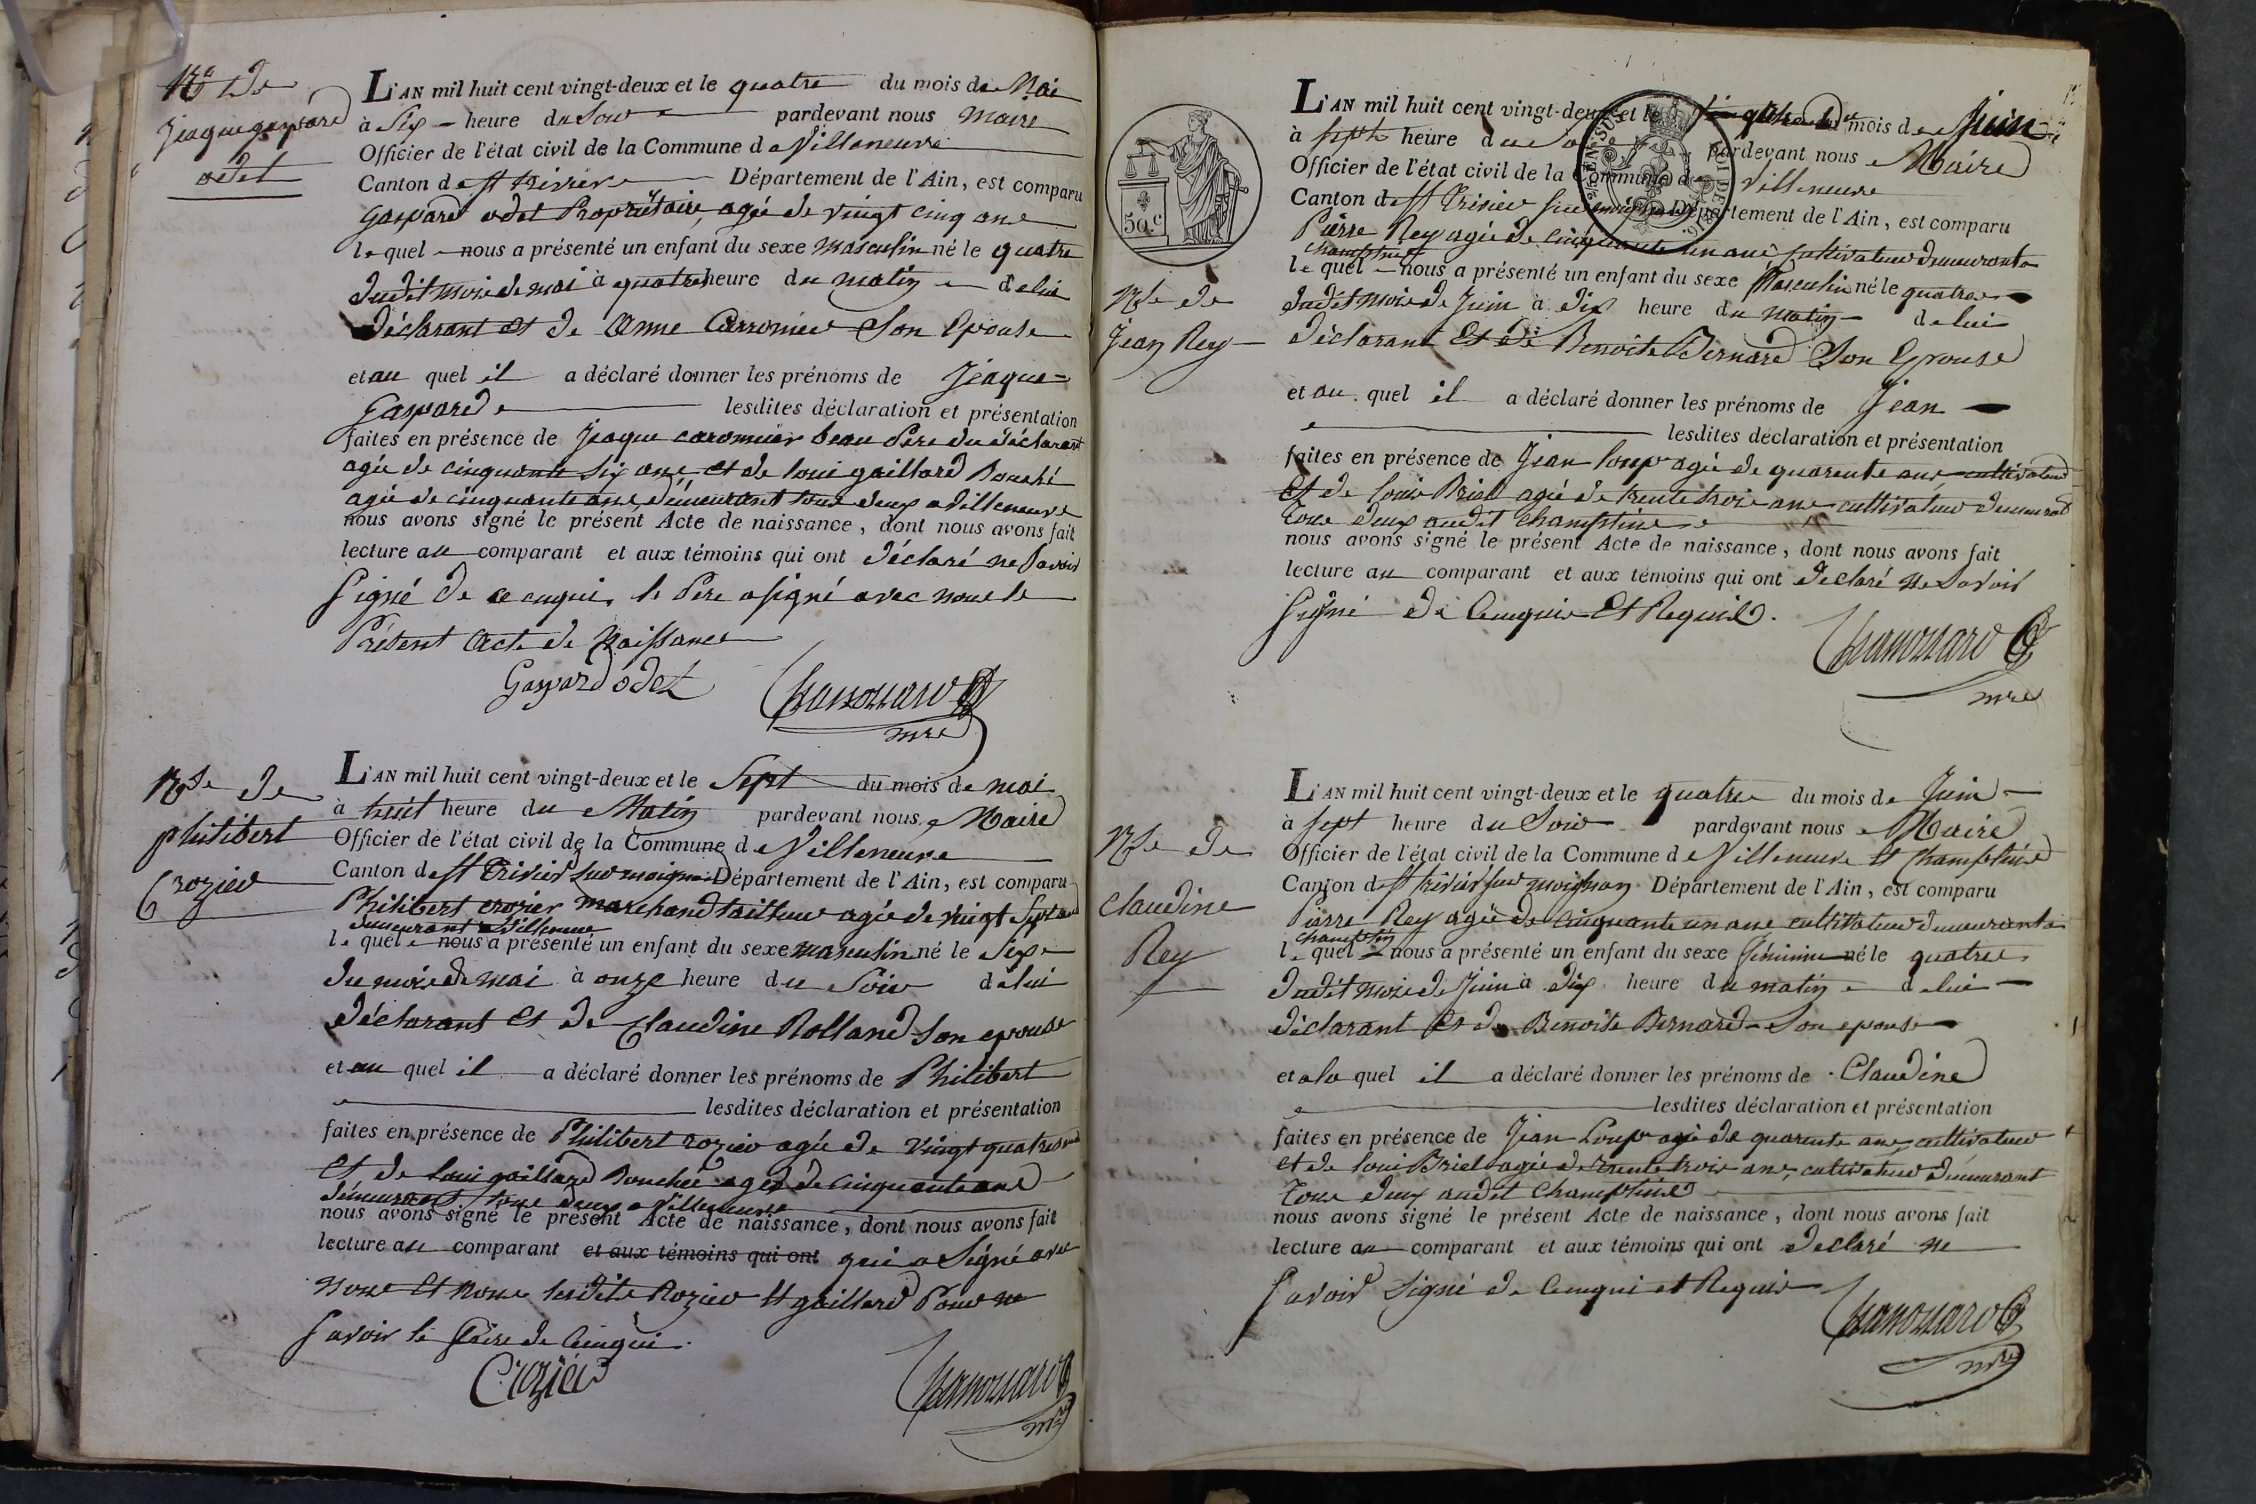 Nce de
Jeaque gaspard
odet
L'AN mil huit cent vingt-deux et le quatre du mois de Mai
à Six heure du Soir pardevant nous Maire
Officier de l'état civil de la Commune de Villeneuve
Canton de St Trivier Département de l'Ain, est comparu
Gaspard odet Propriétaire, agée de vingt cinq ans
le quel nous a présenté un enfant du sexe masculin né le quatre
dudit mois de mai à quatre heure du matin de lui
déclarant et de Anne Carronier Son Epouse
et au quel il a déclaré donner les prénoms de Jeaque
Gaspard lesdites déclaration et présentation
faites en présence de Jeaque caromier beau Pere du déclarant
agée de cinquante six ans et de loui gaillard Bouché
agée de cinquante ans, demeurant tous deux a villeneuve
nous avons signé le présent Acte de naissance, dont nous avons fait
lecture au comparant et aux témoins qui ont déclaré ne Savoir
Signé de ce enquis, le Pere a signé avec nous le
Présent Acte de Naissance
Gaspard odet
Chanouard
mre
Nce de
philibert
Crozier
L'AN mil huit cent vingt-deux et le Sept du mois de mai
à huit heure du Matin pardevant nous Maire
Officier de l'état civil de la Commune de Villeneuve
Canton de St Trivier Sur moignan Département de l'Ain, est comparu
Philibert crozier marchand tailleur agée de vingt Sept ans
demeurant a Villeneuve
le quel nous a présenté un enfant du sexe masculin né le Six
du mois de mai à onze heure du Soir de lui
déclarant et de Claudine Rolland Son epouse
et au quel il a déclaré donner les prénoms de Philibert
lesdites déclaration et présentation
faites en présence de Philibert rozier agée de vingt quatre ans
et de loui gaillard Bouchée agée de cinquante ans
demeurant tous deux a Villeneuve
nous avons signé le présent Acte de naissance, dont nous avons fait
lecture au comparant et aux témoins qui ont qui a Signé avec
nous et non lesdits Rozier et gaillard Pour ne
Savoir le faire de Cenqui.
Crozier
Chanouard
mre
50 C
Nce de
Jean Rey
L'AN mil huit cent vingt-deux et le quatre du mois de Juin
à Sept heure du Soir pardevant nous Maire
Officier de l'état civil de la Commune de Villeneuve
Canton de St Trivier Sur moignan Département de l'Ain, est comparu
Pierre Rey agée de cinquante un ans, cultivateur demeurant a
Champteins
le quel nous a présenté un enfant du sexe Masculin né le quatre
dudit mois de Juin à dix heure du matin de lui
déclarant Et de Benoite Bernard Son Epouse
et au quel il a déclaré donner les prénoms de Jean
lesdites déclaration et présentation
faites en présence de Jean loup agée de quarente ans, cultivateur
Et de louis Briel agée de trente trois ans cultivateur demeurant
Tous deux audit Champteins
nous avons signé le présent Acte de naissance, dont nous avons fait
lecture au comparant et aux témoins qui ont declaré ne Savoir
Signé de Cenquis Et Requis.
Chanouard
mre
Nce de
Claudine
Rey
L'AN mil huit cent vingt-deux et le quatre du mois de Juin
à Sept heure du Soir pardevant nous Maire
Officier de l'état civil de la Commune de Villeneuve et Champteins
Canton de St trivier Sur moignan Département de l'Ain, est comparu
Pierre Rey agée de cinquante un ans, cultivateur demeurant a
Champtein
le quel nous a présenté un enfant du sexe féminin né le quatre
dudit mois de Juin à dix heure du matin de lui
déclarant Et de Benoite Bernard Son epouse
et a la quel il a déclaré donner les prénoms de Claudine
lesdites déclaration et présentation
faites en présence de Jean Loup agée de quarente ans, cultivateur
et de loui Briel agée de trente trois ans, cultivateur demeurant
Tous deux audit Champteins
nous avons signé le présent Acte de naissance, dont nous avons fait
lecture au comparant et aux témoins qui ont declaré ne
Savoir Signé de Cenqui et Requis
Chanouard
mre